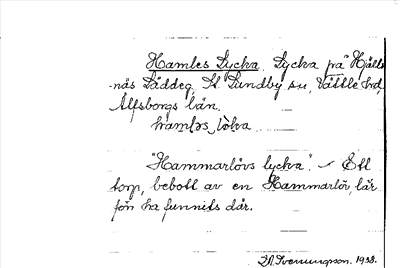 Hamles Lycka. Lycka på Hjäll-
näs Säddeg, St. Lundby sn, Vättle hd,
Älfsborgs län.
"Hammarlövs lycka". - Ett
torp, bebott av en Hammarlöv, lär
förr ha funnits där.
Svenungson. 1938.